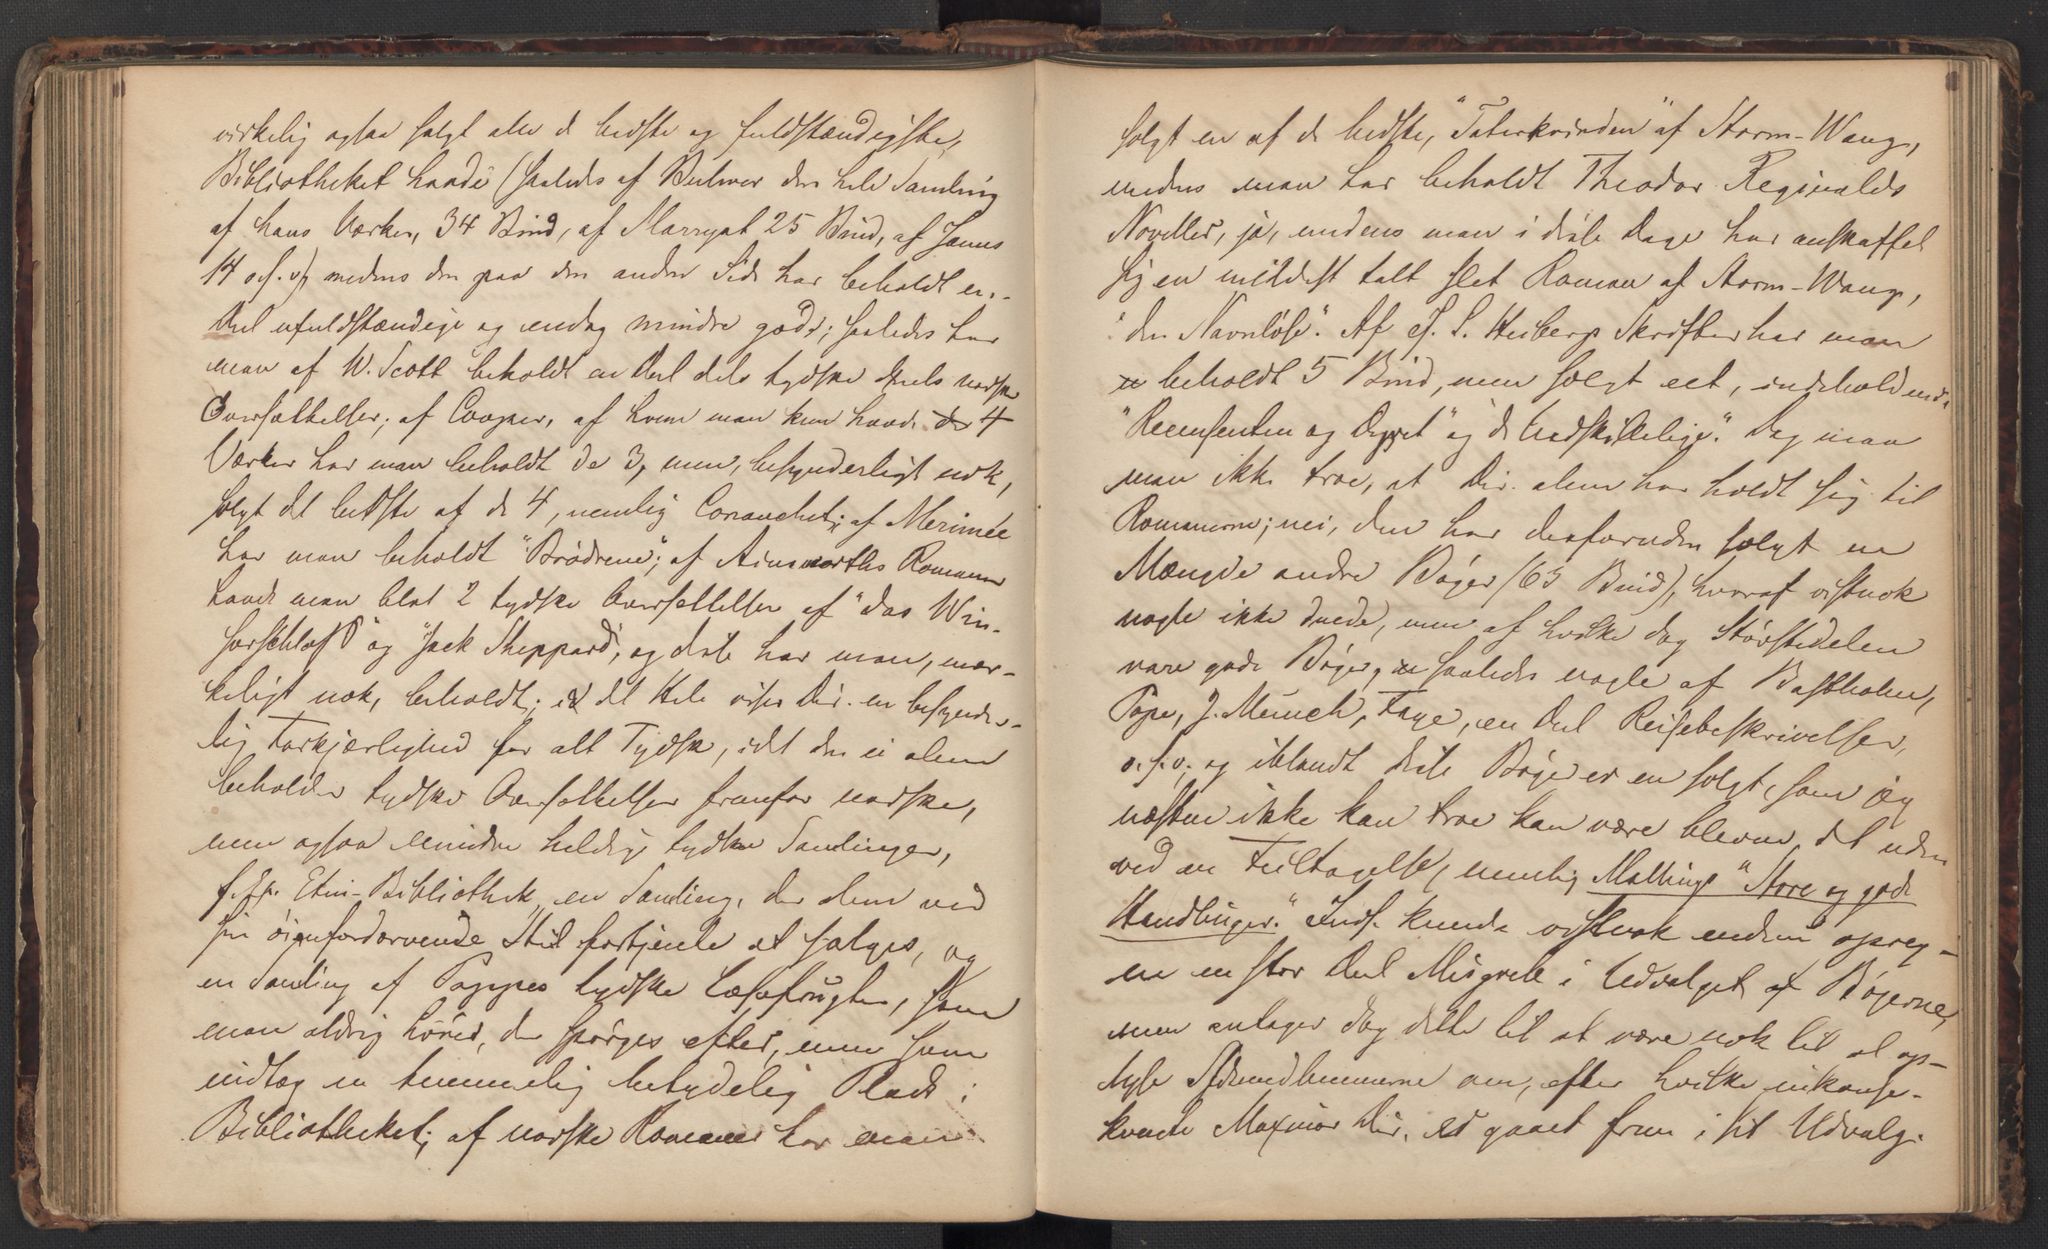 virkelig ogsaa solgt alle de bedste og fuldstændigste,
Bibliotheket havde (saaledes af Bulwer den hele Samling
af hans Værker, 34 Bind, af Marryat 25 Bind, af James
14 o.s.v.) medens den paa den anden Side har beholdt en
Deel ufuldstændige og endog mindre gode; saaledes har
man af W. Scott beholdt en Deel dels tydske dels norske
Oversættelser; af Cooper, af hvem man kun havde 4
Værker har man beholdt de 3, men, besynderligt nok,
solgt det bedste af de 4, nemlig Conanchet; af Merimée
har man beholdt "Brödrene"; af Ainsworths Romaner
havde man blot 2 tydske Oversættelser af "das Win-
sorschloß" og "Jack Sheppard", og dette har man, mær-
keligt nok, beholdt; i det Hele viser Dir. en besynder-
lig Forkjærlighed for alt Tydsk, idet den ei alene
beholder tydske Oversættelser fremfor norske,
men ogsaa mindre heldige tydske Samlinger,
f. Ex. Etui-Bibliothek, en Samling, der alene ved
sin øienfordærvende Stil fortjente at sælges, og
en Samling af Pappes tydske Læsefrugter, som
man aldrig hörer, der spørges efter, men som
indtog en temmelig betydelig Plads i
Bibliotheket; af norske Romaner har man
solgt en af de bedste, "Taterkvinden" af Storm-Wang,
medens man har beholdt Theodor Reginalds
Noveller, ja, medens man i disse Dage har anskaffet
sig en mildest talt slet Roman af Storm-Wang,
"den Navnløse". Af J. L. Heibergs Skrifter har man
beholdt 5 Bind, men solgt eet, indeholdende
"Recensenten og Dyret" og "de Uadskillelige". Dog maa
man ikke troe, at Dir. alene har holdt sig til
Romanerne; nei, den har desforuden solgt en
Mængde andre Bøger (63 Bind), hvoraf vistnok
nogle ikke duede, men af hvilke dog Störstedelen
vare gode Bøger, saaledes nogle af Bastholm,
Pope, J. Munch, Faye, en Deel Reisebeskrivelser,
o.s.v; og iblandt disse Bøger er en solgt, som jeg
næsten ikke kan troe kan være bleven det uden
ved en Feiltagelse, nemlig Mallings "Store og gode
Handlinger." Inds. kunde vistnok endnu opreg-
ne en stor Deel Misgreb i Udvalget af Bøgerne,
men antager dog dette til at være nok til at op-
lyse Abonnenterne om, efter hvilke inkonse-
kvente Maximer Dir. er gaaet frem i sit Udvalg.